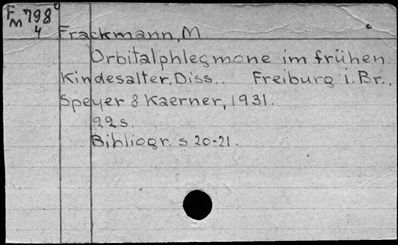 F M 798°
4
Frackmann, M
Orbitalphlegmone im frühen
Kindesalter. Diss.. Freiburg i. Br.,
Speyer & Kaerner, 1931.
22s.
Bibliogr. s 20-21.